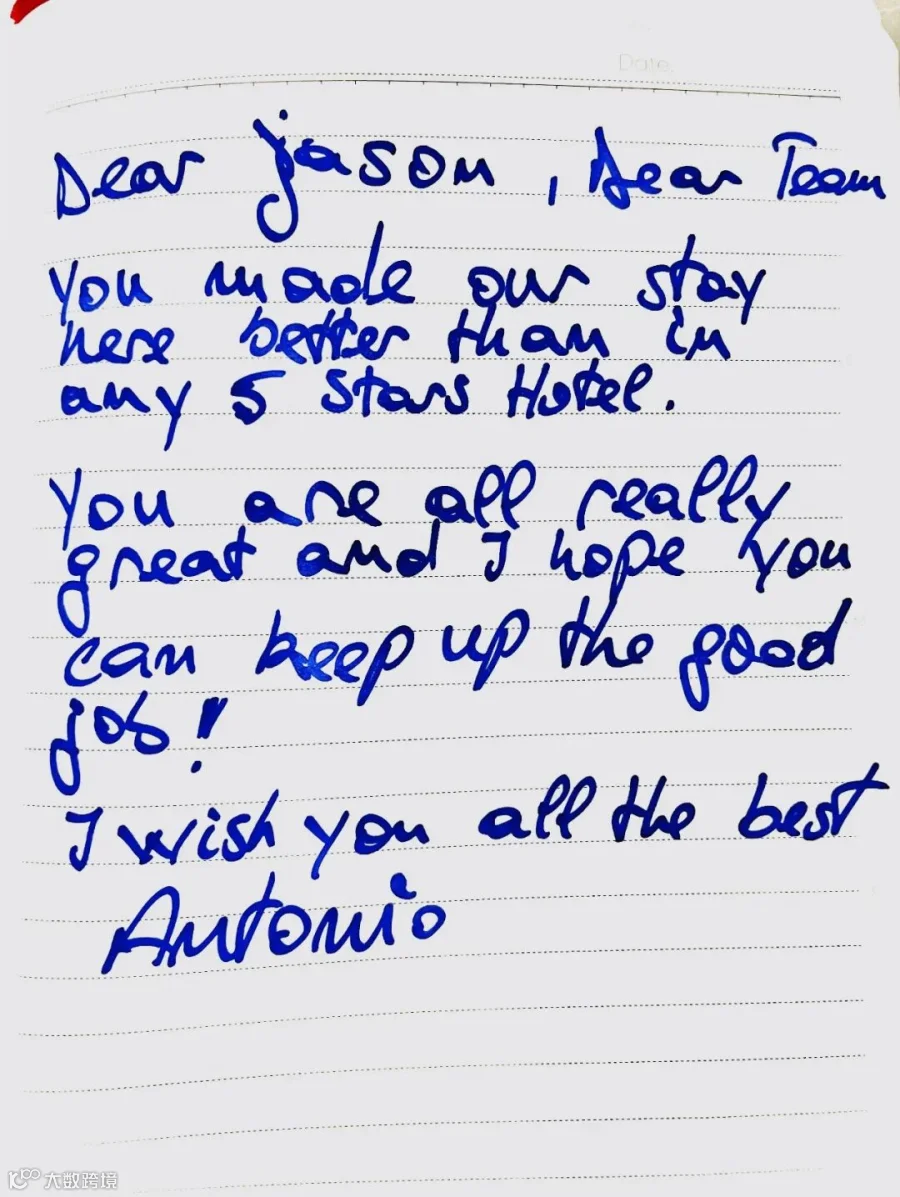 Date.
Dear Jason, Dear Team
You made our stay
here better than in
any 5 stars Hotel.
You are all really
great and I hope you
can keep up the good
job!
I wish you all the best
Antonio
大数跨境